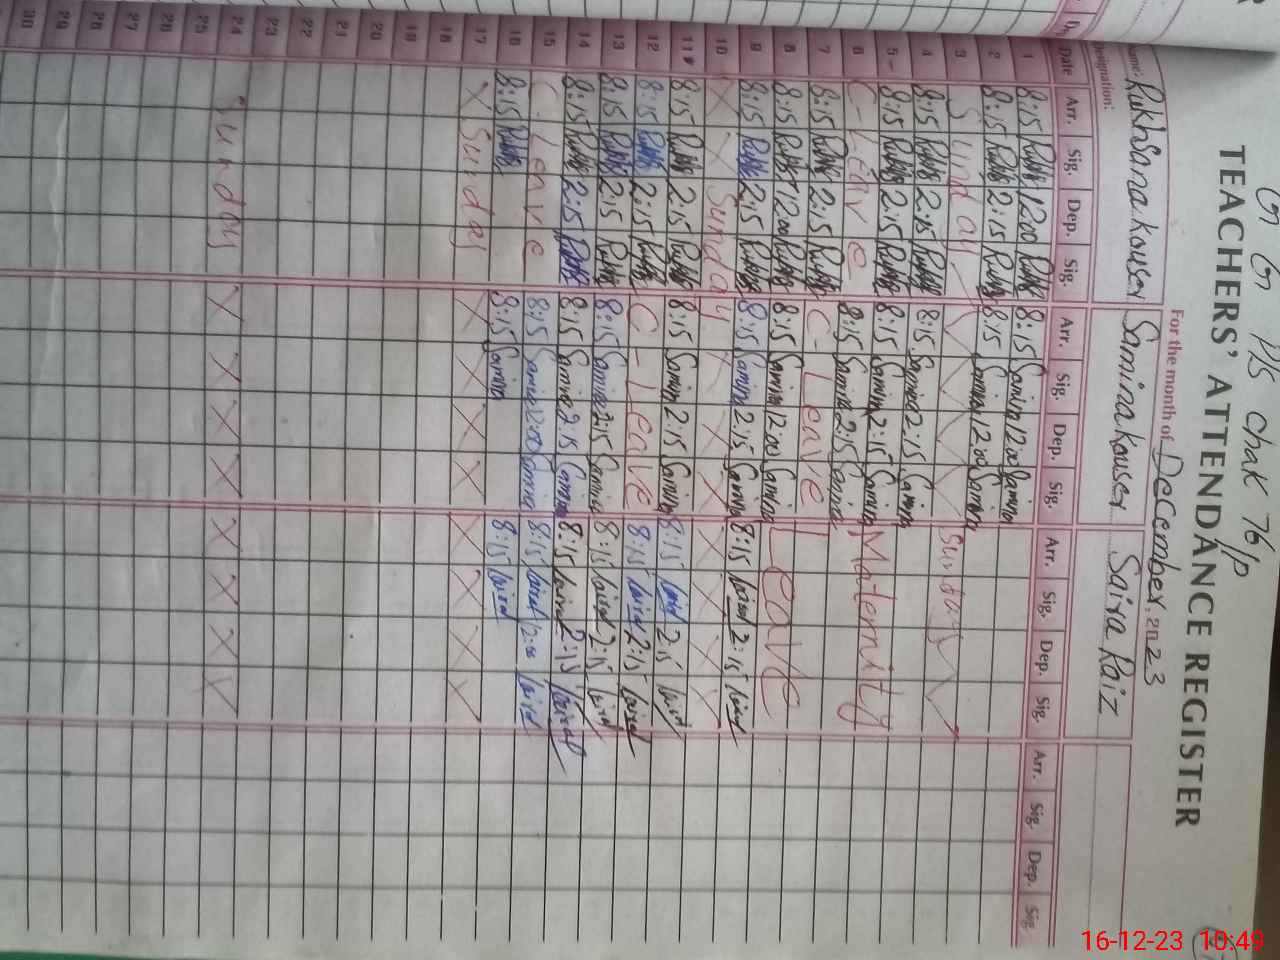 G G P/S chak 76/P
TEACHERS' ATTENDANCE REGISTER
For the month of December, 2023
Name: Rukhsana kouser Samina kouser Saira Raiz
Designation:
Date Arr. Sig. Dep. Sig. Arr. Sig. Dep. Sig. Arr. Sig. Dep. Sig. Arr. Sig. Dep. Sig.
1 8:15 Rukhs 12:00 Rukhs 8:15 Samina 12:00 Samina
2 8:15 Rukhs 2:15 Rukhs 8:15 Samina 12:00 Samina
3 Sunday X X X X Sunday
4 8:15 Rukhs 2:15 Rukhs 8:15 Samina 2:15 Samina
5 8:15 Rukhs 2:15 Rukhs 8:15 Samina 2:15 Samina Maternity
6 C-Leave 8:15 Samina 2:15 Samina
7 8:15 Rukhs 2:15 Rukhs C-Leave
8 8:15 Rukhs 12:00 Rukhs 8:15 Samina 12:00 Samina Leave
9 8:15 Rukhs 2:15 Rukhs 8:15 Samina 2:15 Samina 8:15 2:15
10 X X Sunday X X X X X X X
11 8:15 Rukhs 2:15 Rukhs 8:15 Samina 2:15 Samina 8:15 2:15
12 8:15 Rukhs 2:15 Rukhs C-Leave 8:15 2:15
13 8:15 Rukhs 2:15 Rukhs 8:15 Samina 2:15 Samina 8:15 2:15
14 8:15 Rukhs 2:15 Rukhs 8:15 Samina 2:15 Samina 8:15 2:15
15 C-Leave 8:15 Samina 12:00 Samina 8:15 12:00
16 8:15 Rukhs 8:15 Samina 8:15
17 X Sunday X X X X X X X X
18
19
20
21
22
23
24 Sunday X X X X X X X X
25
26
27
28
29
30
16-12-23 10:49